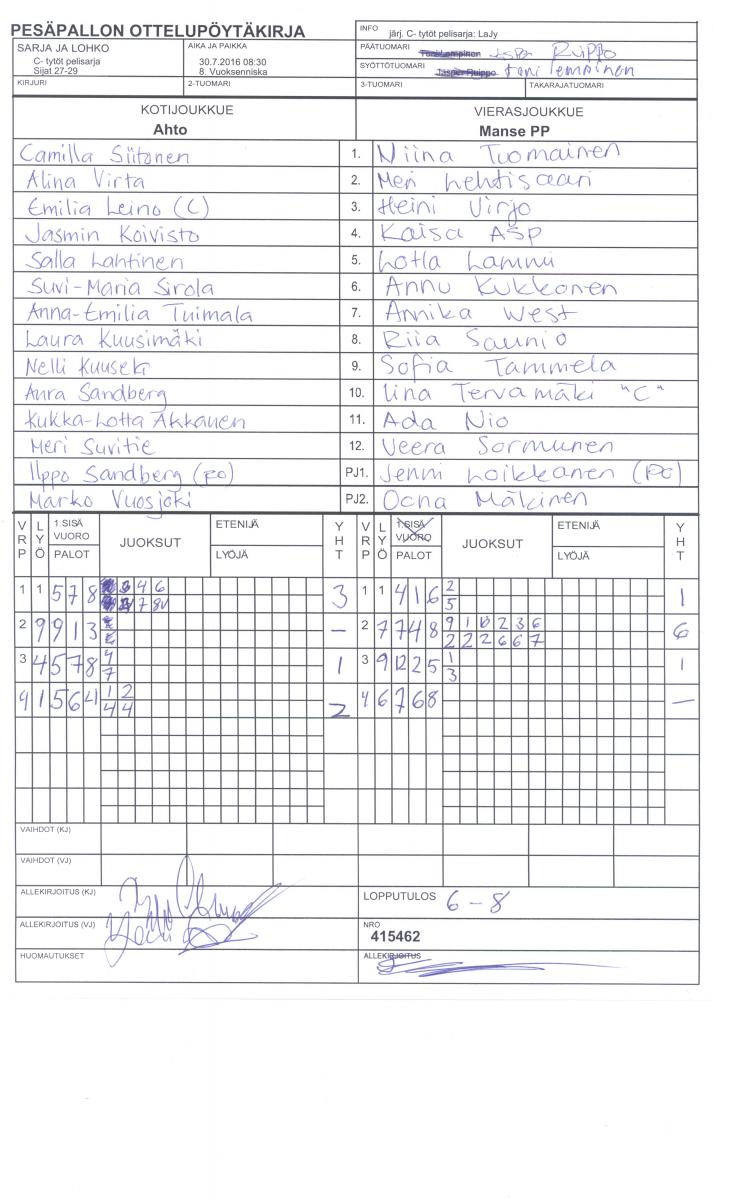 PESÄPALLON OTTELUPÖYTÄKIRJA
INFO järj. C- tytöt pelisarja: LaJy
SARJA JA LOHKO
C- tytöt pelisarja
Sijat 27-29
AIKA JA PAIKKA
30.7.2016 08:30
8. Vuoksenniska
PÄÄTUOMARI Toni Lempinen Jasper Ruippo
SYÖTTÖTUOMARI Jasper Ruippo toni lempinen
KIRJURI 2-TUOMARI 3-TUOMARI TAKARAJATUOMARI
KOTIJOUKKUE VIERASJOUKKUE
Ahto Manse PP
Camilla Siitonen 1. Niina Tuomainen
Alina Virta 2. Meri Lehtisaari
Emilia Leino (C) 3. Heini Virjo
Jasmin Koivisto 4. Kaisa Asp
Salla Lahtinen 5. Lotta Lammi
Suvi-Maria Sirola 6. Annu Kukkonen
Anna-Emilia Tuimala 7. Annika West
Laura Kuusimäki 8. Riia Saunio
Nelli Kuusela 9. Sofia Tammela
Anra Sandberg 10. Iina Tervamäki "C"
Kukka-Lotta Akkanen 11. Ada Nio
Meri Suvitie 12. Veera Sormunen
Ilppo Sandberg (PO) PJ1. Jenni Loikkanen (PO)
Marko Vuosjoki PJ2. Oona Mäkinen
VRP LYÖ 1.SISÄVUORO PALOT JUOKSUT ETENIJÄ LYÖJÄ YHT VRP LYÖ 1.SISÄVUORO PALOT JUOKSUT ETENIJÄ LYÖJÄ YHT
1 1 5 7 8 3 4 6 3 1 1 4 1 6 2 1
7 8 5
2 9 9 1 3 – 2 7 7 4 8 9 1 10 2 3 6 6
2 2 2 6 6 7
3 4 5 7 8 4 1 3 9 12 2 5 1 1
7 3
4 1 5 6 4 1 2 2 4 6 7 6 8 –
4 4
VAIHDOT (KJ)
VAIHDOT (VJ)
ALLEKIRJOITUS (KJ) LOPPUTULOS 6 - 8
ALLEKIRJOITUS (VJ) NRO
415462
HUOMAUTUKSET ALLEKIRJOITUS